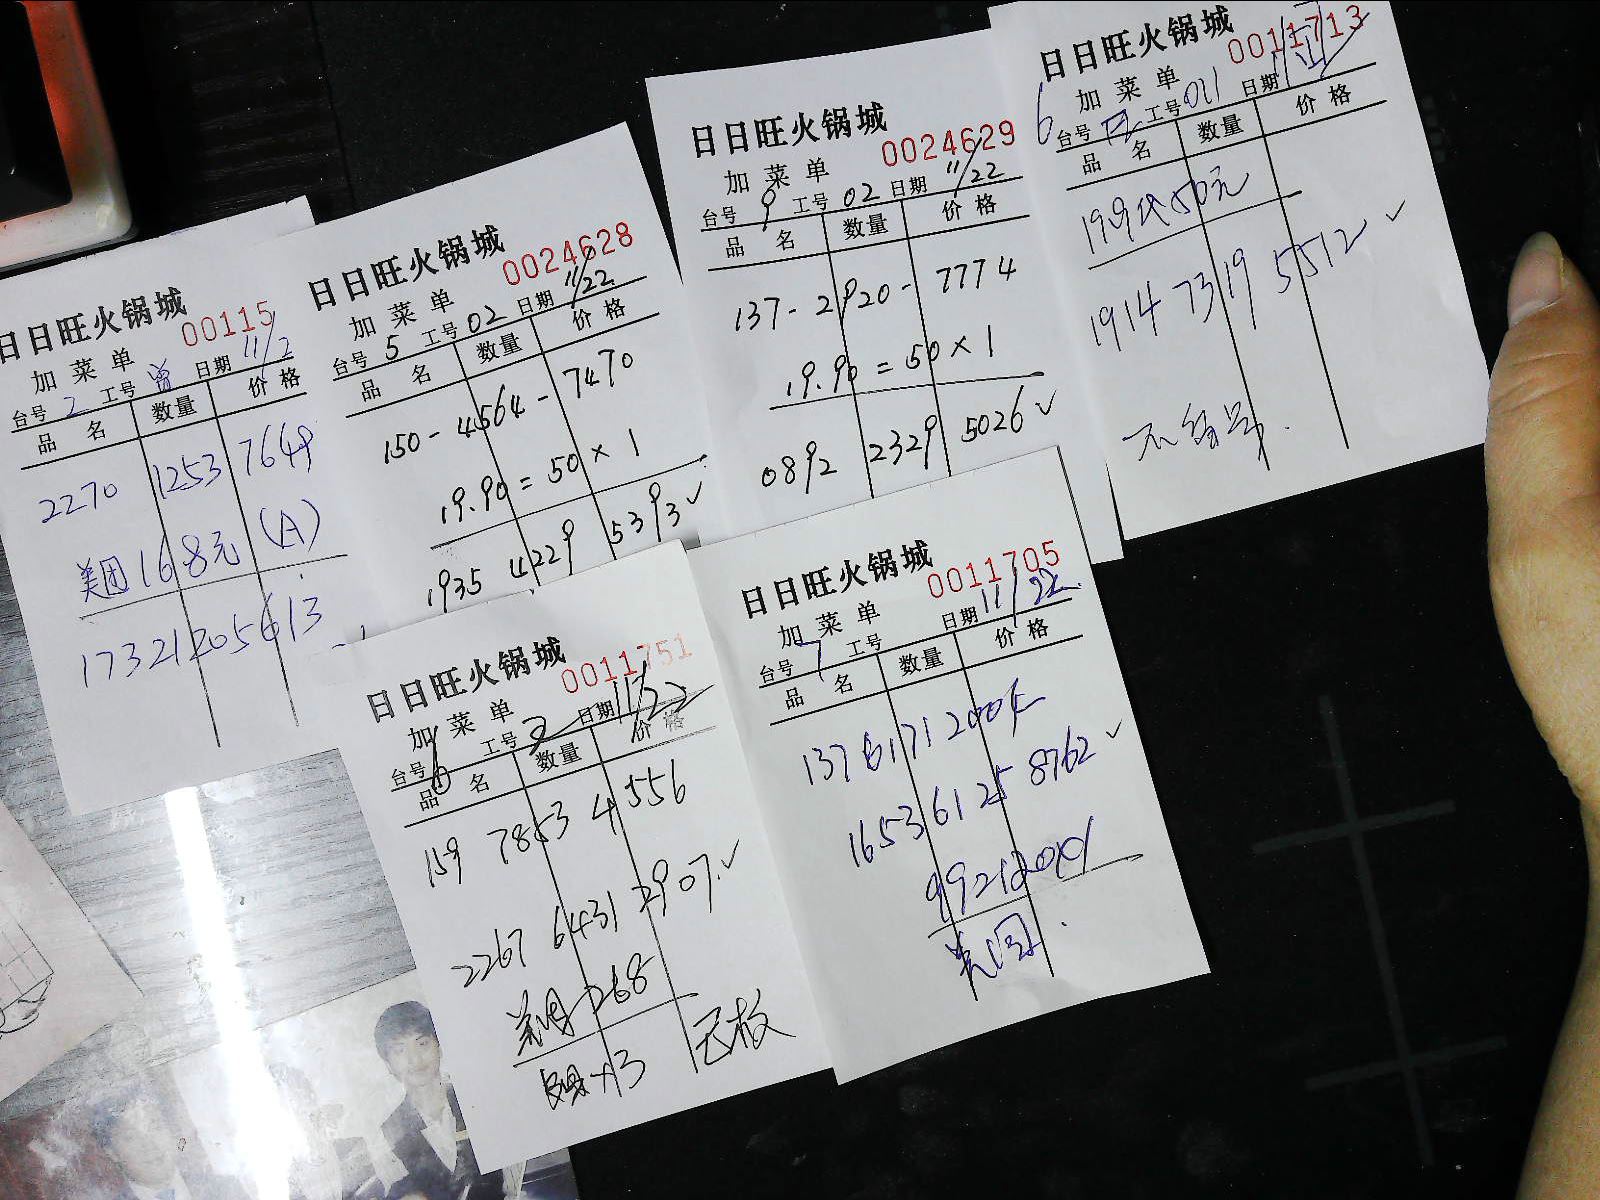 日日旺火锅城 00115
加菜单
台号 2 工号 曾 日期 11/2
品名 数量 价格
2270 1253 7649
美团168元 (A)
1732 1205 613
日日旺火锅城 0024628
加菜单
台号 5 工号 02 日期 11/22
品名 数量 价格
150-4564-7470
19.90=50×1
1935 4229 5393✓
日日旺火锅城 0024629
加菜单
台号 9 工号 02 日期 11/22
品名 数量 价格
137-2920-7774
19.90=50×1
0892 2329 5026✓
日日旺火锅城 0011713
加菜单
台号 工号 011 日期
品名 数量 价格
19.9代50元
1914 7319 5512✓
不留号.
日日旺火锅城 0011751
加菜单
台号 工号 日期 11/22
品名 数量 价格
159 7853 4556
2267 6431 2907.✓
美团 268
×13
日日旺火锅城 0011705
加菜单
台号 7 工号 日期 11/22
品名 数量 价格
1653 6125 8762✓
美团.